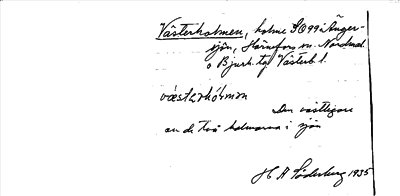 Västerholmen, holme SO99 i Ånger-
sjön, Hörnefors sn. Nordmal.
o Bjurh. tg Västerb l.
västerhólmɷn
Den västligare
av de två holmarna i sjön
H A Söderberg 1935